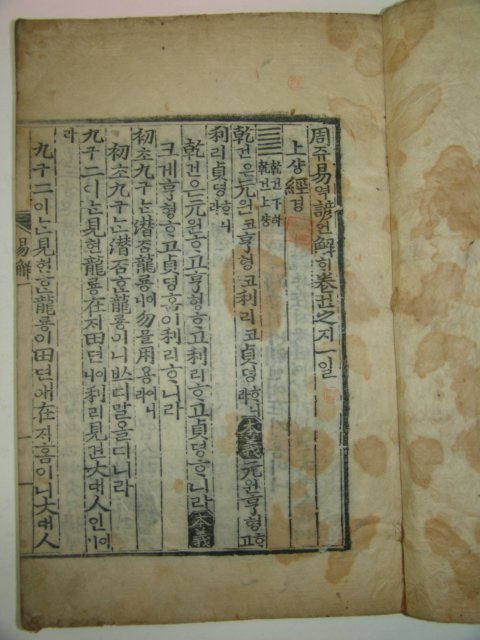 周쥬易역諺언解ᄒᆡ卷권之지一일
上샹經경
乾건下하 乾건上샹
乾건은元원코亨형코利리코貞뎡ᄒᆞ니라 本義 元원코亨형코ᄒᆞ고
利리貞뎡ᄒᆞ니라
乾건은元원ᄒᆞ고亨형ᄒᆞ고利리ᄒᆞ고貞뎡ᄒᆞ니라 本義
크게亨형ᄒᆞ고貞뎡홈이利리ᄒᆞ니라
初초九구ᄂᆞᆫ潛ᄌᆞᆷ龍룡이니勿믈用용이니라
初초九구ᄂᆞᆫ潛ᄌᆞᆷᄒᆞᆫ龍룡이니ᄡᅳ디말올디니라
九구二이ᄂᆞᆫ見현龍룡在ᄌᆡ田뎐이니利리見견大대人인이니
라
九구二이ᄂᆞᆫ見현ᄒᆞᆫ龍룡이田뎐애在ᄌᆡ홈이니大대人인
易解 一